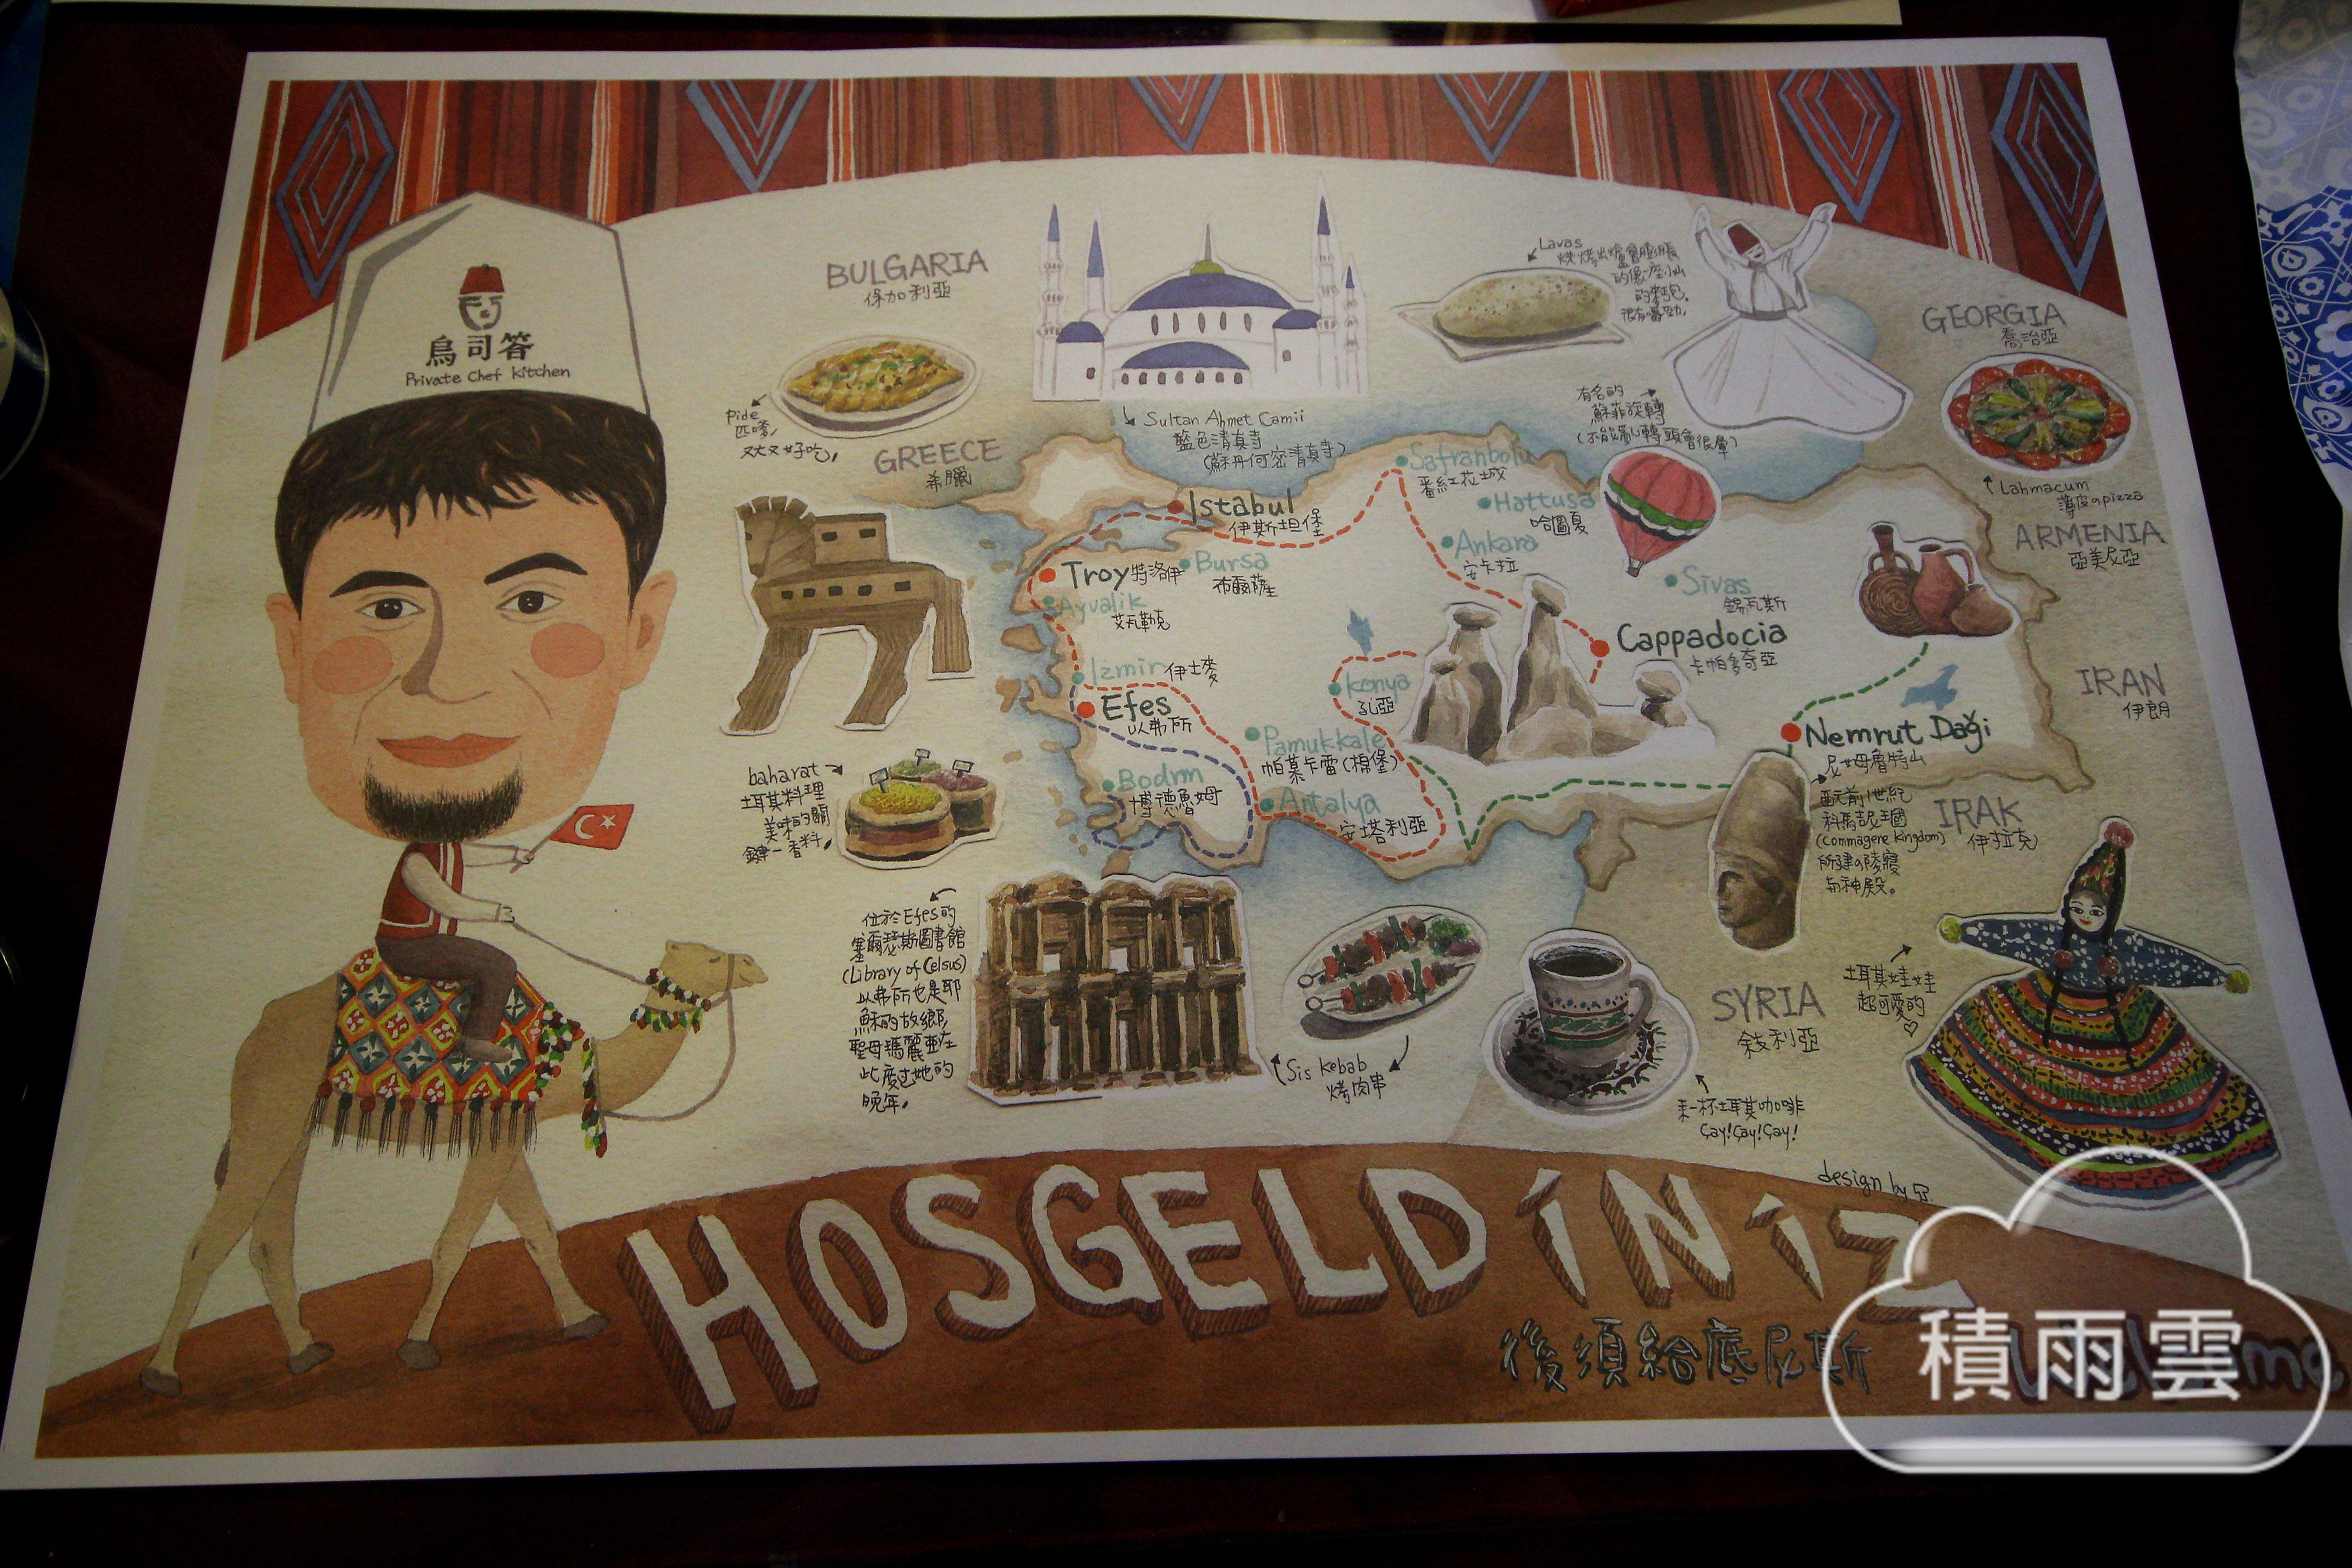 烏司答
Private Chef Kitchen
BULGARIA
保加利亞
Pide
匹嗲,
又大又好吃,
GREECE
希臘
Sultan Ahmet Camii
藍色清真寺
(蘇丹何密清真寺)
Lavas
烘烤出爐會膨脹
的像一座小山
的麵包。
很有嚼勁。
有名的
蘇菲旋轉
(不能亂轉頭會很暈)
GEORGIA
喬治亞
Lahmacum
薄皮の pizza
ARMENIA
亞美尼亞
IRAN
伊朗
IRAK
伊拉克
SYRIA
敍利亞
Istabul
伊斯坦堡
Safranbolu
番紅花城
Hattusa
哈圖夏
Ankara
安卡拉
Sivas
錫瓦斯
Troy 特洛伊
Bursa
布爾薩
Ayvalik
艾瓦勒克
Izmir 伊士麥
Efes
以弗所
Konya
孔亞
Cappadocia
卡帕多奇亞
Pamukkale
帕慕卡雷(棉堡)
Bodrm
博德魯姆
Antalya
安塔利亞
Nemrut Daği
尼姆魯特山
西元前1世紀
科馬吉尼王國
(Commagere Kingdom)
所建の陵寢
與神殿。
baharat
土耳其料理
美味的關
鍵一香料,
位於Efes的
塞爾瑟斯圖書館
(Library of Celsus)
以弗所也是耶
穌的故鄉,
聖母瑪麗亞在
此度過她的
晚年,
Sis Kebab
烤肉串
來一杯土耳其咖啡
Çay! Çay! Çay!
土耳其娃娃
超可愛的
design by
HOSGELDiNiZ
後須給底尼斯
積雨雲